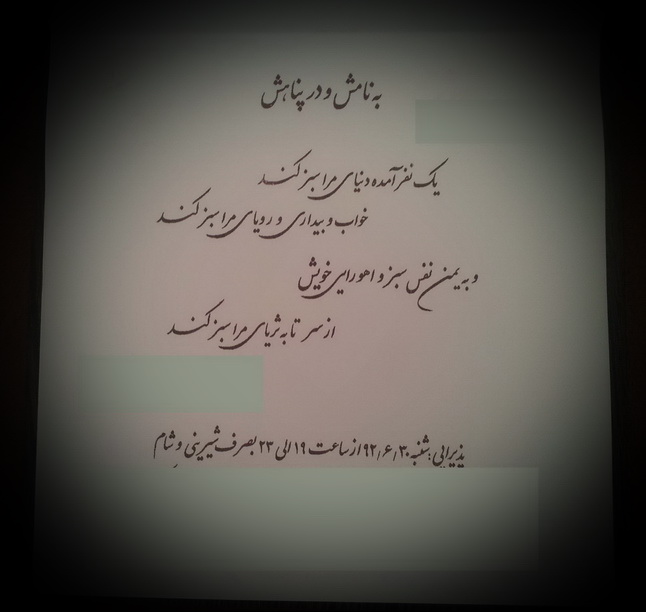 به نامش و در پناهش
یک نفر آمده دنیای مرا سبز کند
خواب و بیداری و رویای مرا سبز کند
و به یمن نفس سبز و اهورایی خویش
از سر تا به ثریای مرا سبز کند
پذیرایی: شنبه ۹۲/۶/۳۰ از ساعت ۱۹ الی ۲۳ بصرف شیرینی و شام